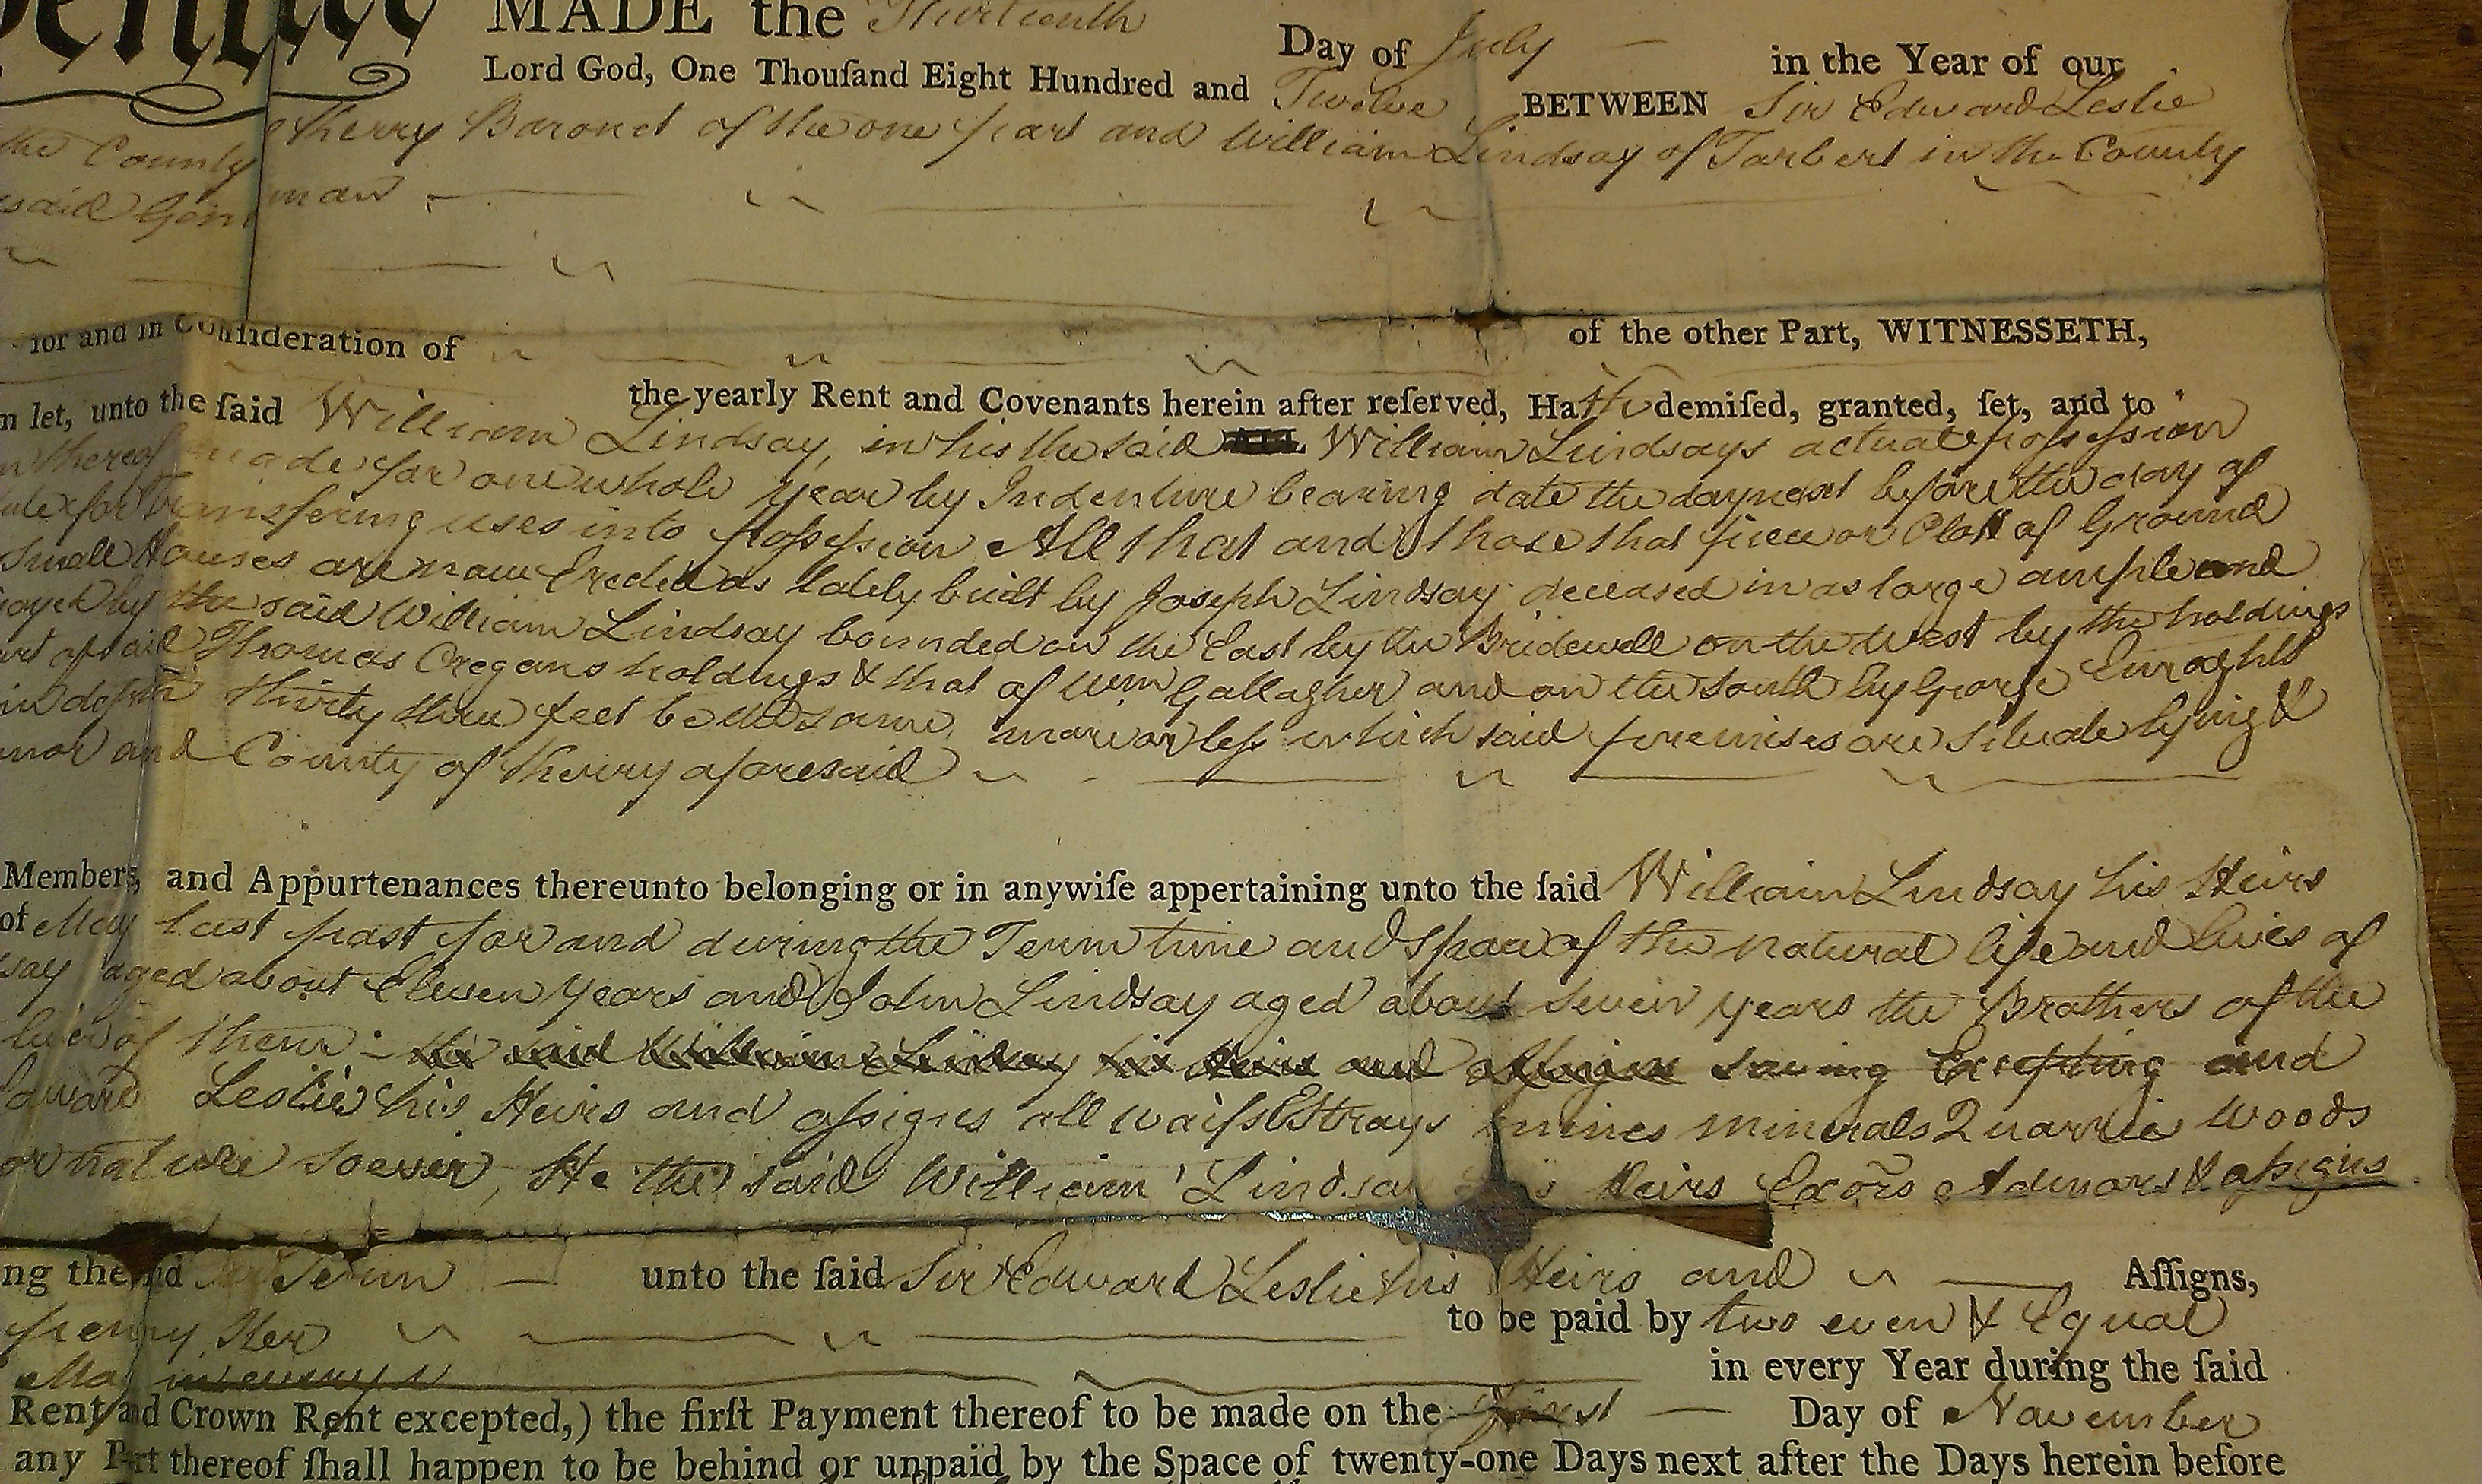 MADE the Thirteenth Day of July in the Year of our
Lord God, One Thouſand Eight Hundred and Twelve BETWEEN Sir Edward Leslie
the County Kherry Baronet of the one part and William Lindsay of Tarbert in the County
said Gentman
of the other Part, WITNESSETH,
for and in Conſideration of
the yearly Rent and Covenants herein after reſerved, Hath demiſed, granted, ſet, and to
let, unto the ſaid William Lindsay, in his the said William Lindsays actual poſseſsion
thereof made for one whole year by Indenture bearing date the day next before the day of
for Transfering uses into poſseſsion All that and those that piece or Plott of Ground
Small Houses are now Erected as lately built by Joseph Lindsay deceased in as large ample and
by the said William Lindsay bounded on the East by the Bridewell on the West by the holdings
of said Thomas Cregans holdings & that of Wm Gallagher and on the South by George Enraghts
in depth thirty three feet be the same more or leſs which said premises are Situate lying &
and County of Kherry aforesaid
Members, and Appurtenances thereunto belonging or in anywiſe appertaining unto the ſaid William Lindsay his Heirs
of May last past for and during the Term time and space of the natural life and lives of
say aged about Eleven years and John Lindsay aged about Seven years the Brothers of the
liver of them the said William Lindsay his Heirs and aſsigns saving Excepting and
Edward Leslie his Heirs and aſsigns all waifs Estrays mines minerals Quarrie Woods
or nature soever, He the said William Lindsay his Heirs Exors Admors & aſsigns
ng the Term unto the ſaid Sir Edward Leslie his Heirs and Aſſigns,
penny Ster to be paid by two even & Equal
May in every in every Year during the ſaid
Rent and Crown Rent excepted,) the firſt Payment thereof to be made on the First Day of November
any Part thereof ſhall happen to be behind or unpaid by the Space of twenty-one Days next after the Days herein before